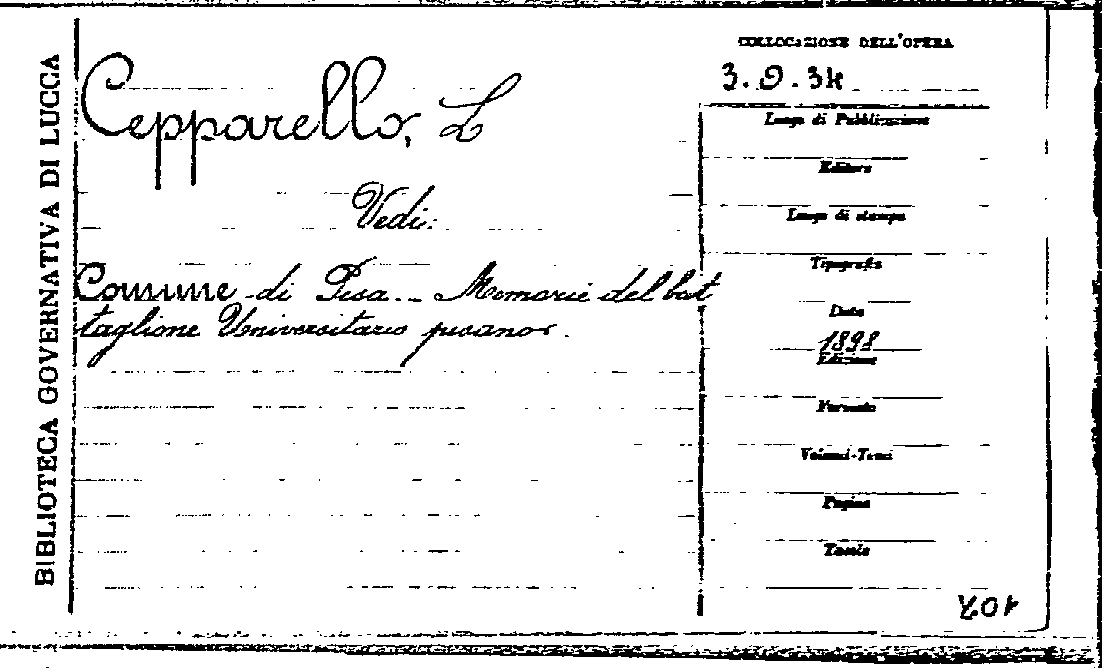 BIBLIOTECA GOVERNATIVA DI LUCCA
Cepparello, L
Vedi:
Comune di Pisa.. Memorie del bat
taglione Universitario pisano.
COLLOCAZIONE DELL'OPERA
3.9.34
Luogo di Pubblicazione
Editore
Luogo di stampa
Tipografia
Data
1898
Edizione
Formato
Volumi-Tomi
Pagine
Tavole